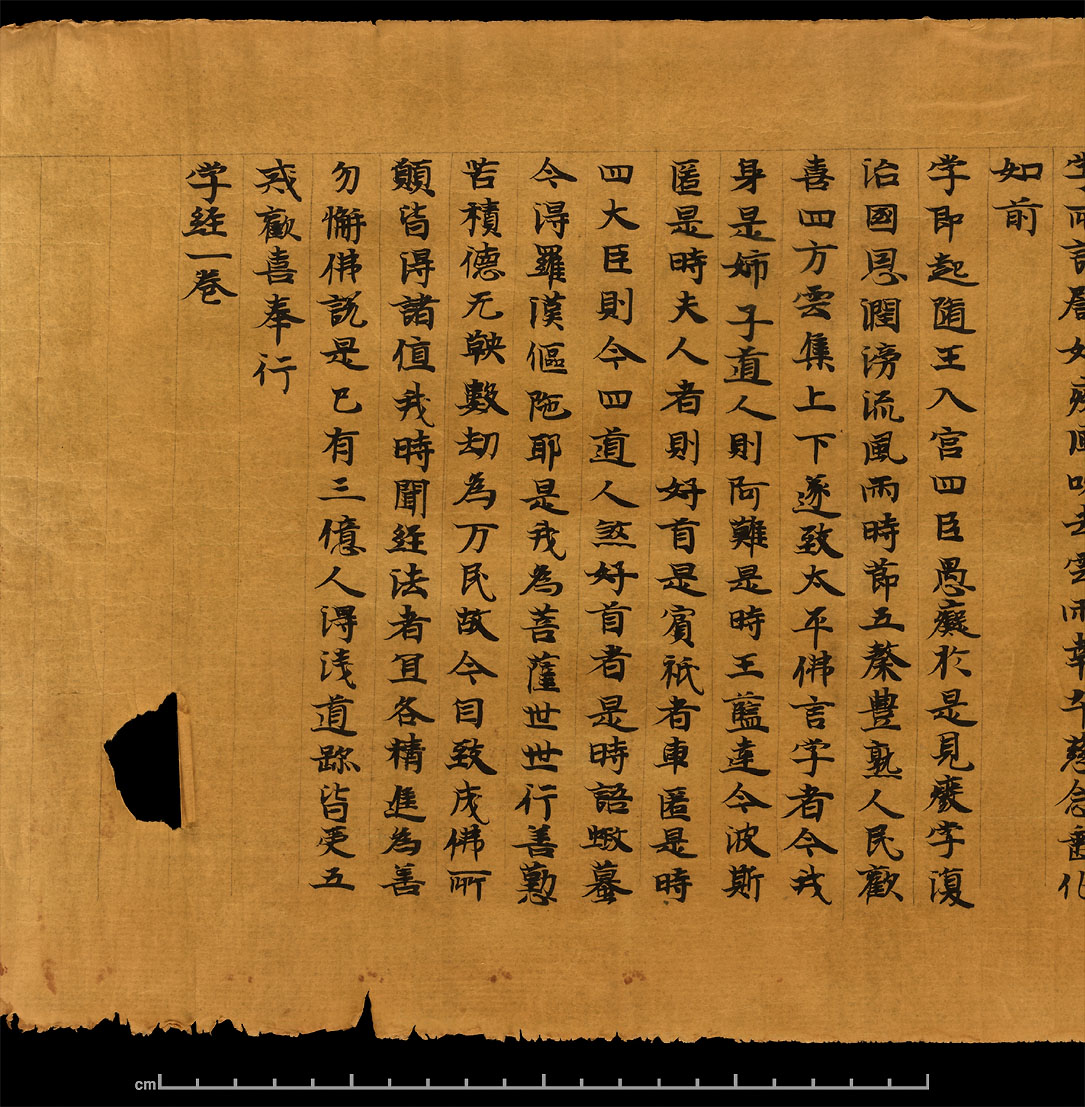 如疾風吹去雲雨幸卒慈念垂化
如前
学即起随王入宫四臣愚癡於是見廢学復
治國恩潤滂流風雨時節五穀豐熟人民歡
喜四方雲集上下遂致太平佛言学者今我
身是姉子道人則阿難是時王藍達今波斯
匿是時夫人者則好首是賔祇者車匿是時
四大臣則今四道人煞好首者是時語蝦蟇
今得羅漢傴陁耶是我為菩薩世世行善懃
苦積德无鞅數劫為万民故今自致成佛所
願皆得諸值我時聞經法者宜各精進為善
勿懈佛說是已有三億人得淺道跡皆受五
戒歡喜奉行
学經一卷